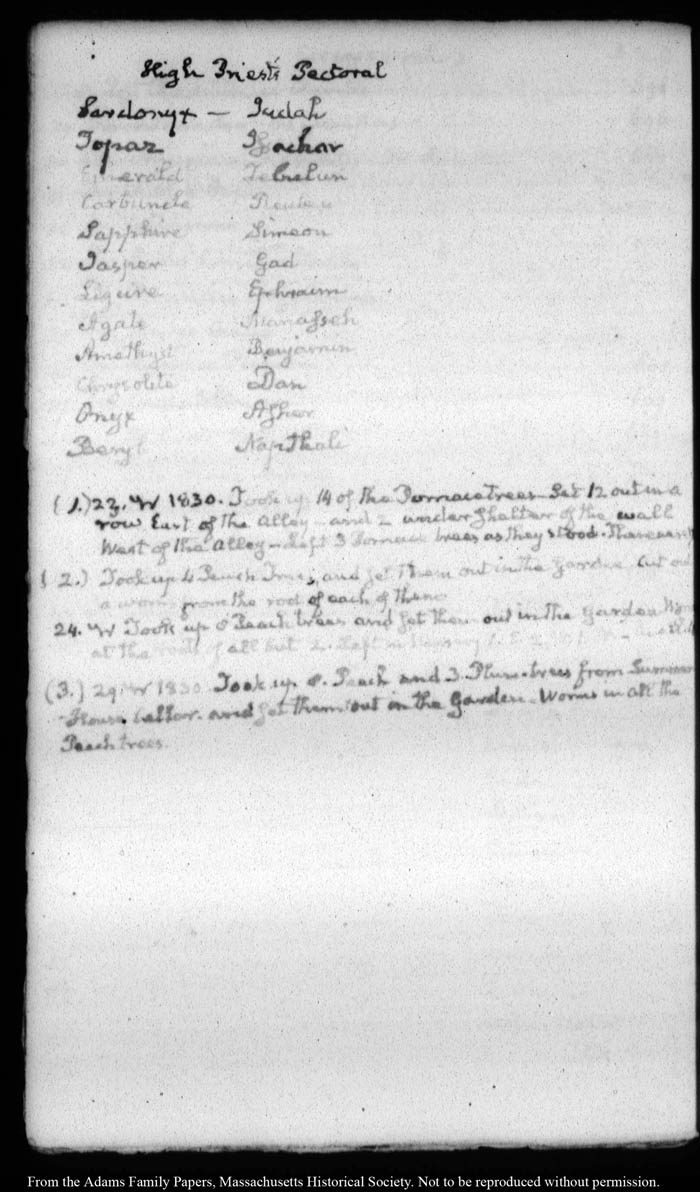 High Priest's Pectoral
Sardonyx — Judah
Topaz Issachar
Emerald Zebulun
Carbuncle Reuben
Sapphire Simeon
Jasper Gad
Ligure Ephraim
Agate Manasseh
Amethyst Benjamin
Chrysolite Dan
Onyx Asher
Beryl Napthali
(1.) 23. IV 1830. Took up 14 of the Pomace trees Set 12 out in a
row East of the Alley and 2 under Shelter of the wall
West of the Alley Left 3 Pomace trees as they stood.
(2.) Took up 4 Peach Trees, and set them out in the Garden Cut out
a worm from the root of each of them
24. IV Took up 8 Peach trees and set them out in the Garden
at the roots of all but 2. Left in Nursery
(3.) 29. IV 1830 Took up 8. Peach and 3. Plum-trees from Summer
House Cellar. and set them out in the Garden. Worms in all the
Peach trees.
From the Adams Family Papers, Massachusetts Historical Society. Not to be reproduced without permission.